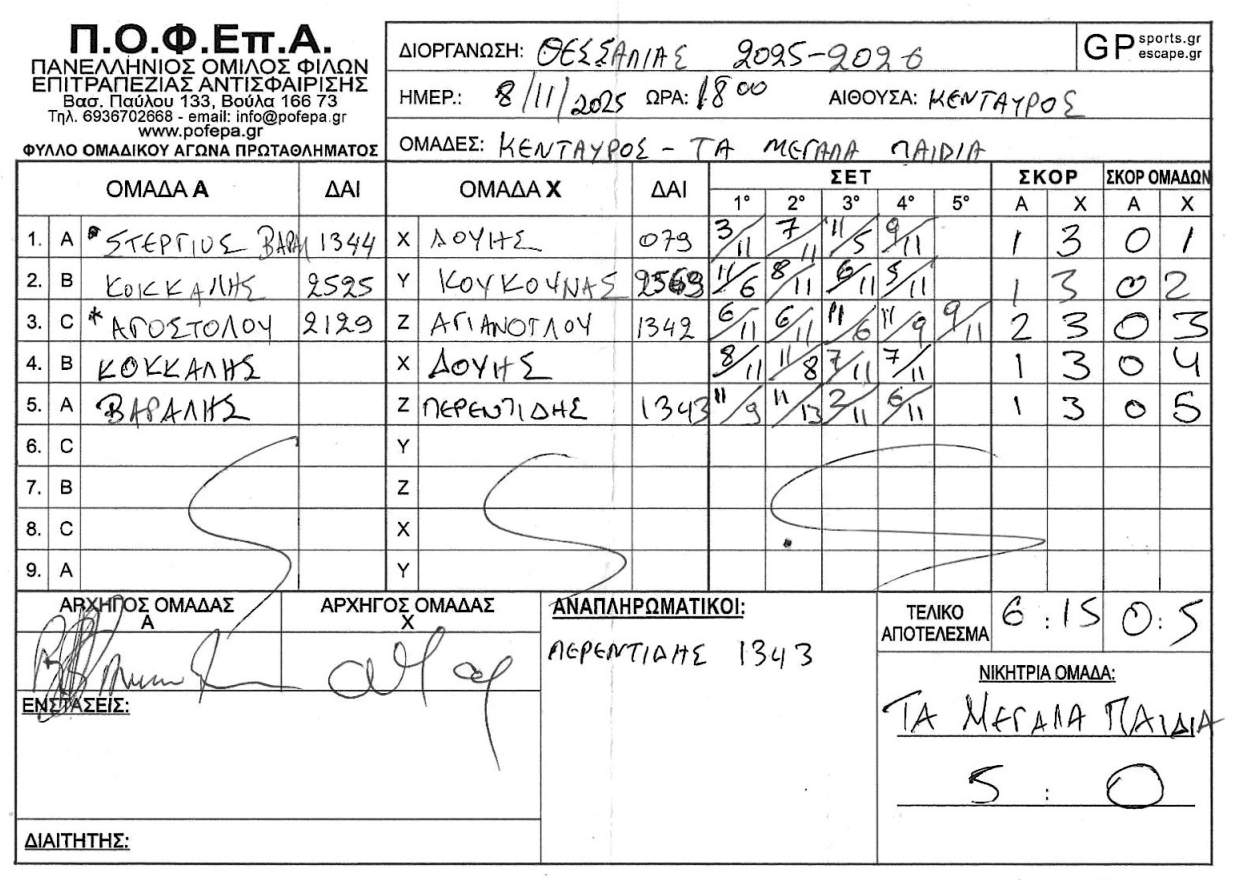 Π.Ο.Φ.Επ.Α.
ΠΑΝΕΛΛΗΝΙΟΣ ΟΜΙΛΟΣ ΦΙΛΩΝ
ΕΠΙΤΡΑΠΕΖΙΑΣ ΑΝΤΙΣΦΑΙΡΙΣΗΣ
Βασ. Παύλου 133, Βούλα 166 73
Τηλ. 6936702668 - email: info@pofepa.gr
www.pofepa.gr
ΦΥΛΛΟ ΟΜΑΔΙΚΟΥ ΑΓΩΝΑ ΠΡΩΤΑΘΛΗΜΑΤΟΣ
ΔΙΟΡΓΑΝΩΣΗ: ΘΕΣΣΑΛΙΑΣ 2025-2026
GP sports.gr escape.gr
ΗΜΕΡ.: 8/11/2025 ΩΡΑ: 18 00 ΑΙΘΟΥΣΑ: ΚΕΝΤΑΥΡΟΣ
ΟΜΑΔΕΣ: ΚΕΝΤΑΥΡΟΣ - ΤΑ ΜΕΓΑΛΑ ΠΑΙΔΙΑ
ΟΜΑΔΑ Α ΔΑΙ ΟΜΑΔΑ Χ ΔΑΙ ΣΕΤ ΣΚΟΡ ΣΚΟΡ ΟΜΑΔΩΝ
1° 2° 3° 4° 5° Α Χ Α Χ
1. A ΣΤΕΡΓΙΟΣ ΒΑΡΑΛ 1344 X ΔΟΥΗΣ 079 3/11 7/11 11/5 9/11 1 3 0 1
2. B ΚΟΚΚΑΛΗΣ 2525 Y ΚΟΥΚΟΥΝΑΣ 2569 11/6 8/11 6/11 5/11 1 3 0 2
3. C * ΑΠΟΣΤΟΛΟΥ 2129 Z ΑΓΙΑΝΟΓΛΟΥ 1342 6/11 6/11 11/6 11/9 9/11 2 3 0 3
4. B ΚΟΚΚΑΛΗΣ X ΔΟΥΗΣ 8/11 11/8 7/11 7/11 1 3 0 4
5. A ΒΑΡΑΛΗΣ Z ΠΕΡΕΝΤΙΔΗΣ 1343 11/9 11/13 2/11 6/11 1 3 0 5
6. C Y
7. B Z
8. C X
9. A Y
ΑΡΧΗΓΟΣ ΟΜΑΔΑΣ Α ΑΡΧΗΓΟΣ ΟΜΑΔΑΣ Χ ΑΝΑΠΛΗΡΩΜΑΤΙΚΟΙ: ΤΕΛΙΚΟ ΑΠΟΤΕΛΕΣΜΑ 6 : 15 0 : 5
ΠΕΡΕΝΤΙΔΗΣ 1343
ΝΙΚΗΤΡΙΑ ΟΜΑΔΑ:
ΤΑ ΜΕΓΑΛΑ ΠΑΙΔΙΑ
5 : 0
ΕΝΣΤΑΣΕΙΣ:
ΔΙΑΙΤΗΤΗΣ: